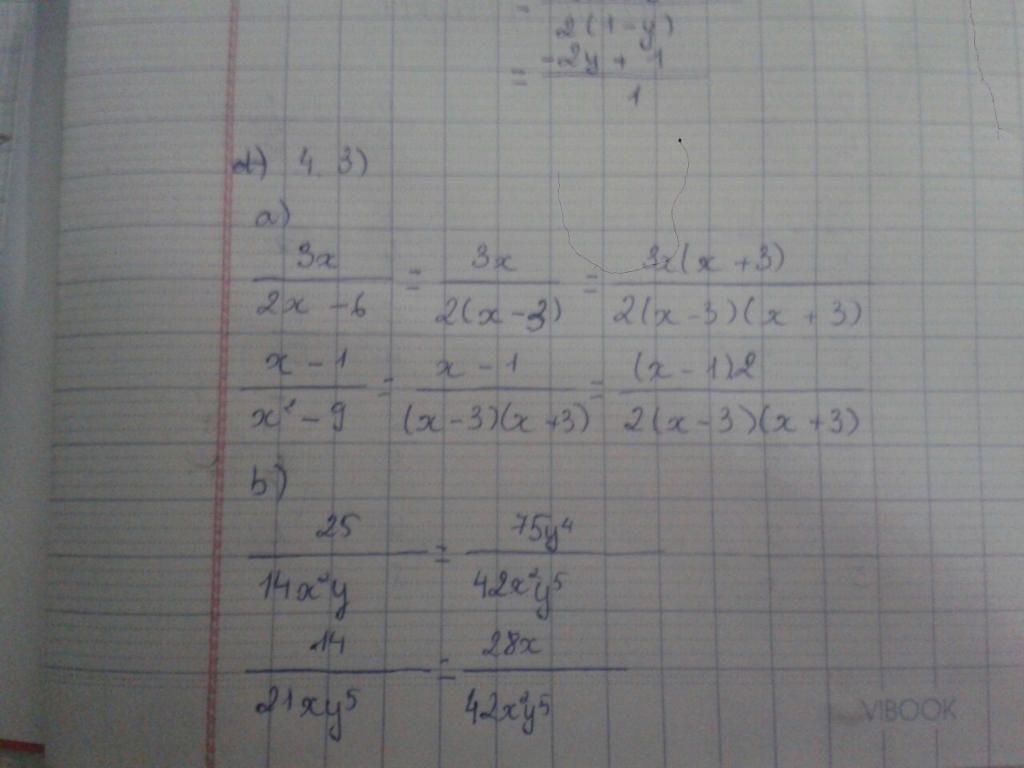 =
2(1 - y)
= -2y + 1 / 1
d) 4. 3)
a)
3x / 2x - 6 = 3x / 2(x - 3) = 3x(x + 3) / 2(x - 3)(x + 3)
x - 1 / x² - 9 = x - 1 / (x - 3)(x + 3) = (x - 1)2 / 2(x - 3)(x + 3)
b)
25 / 14x²y = 75y⁴ / 42x²y⁵
14 / 21xy⁵ = 28x / 42x²y⁵
VIBOOK